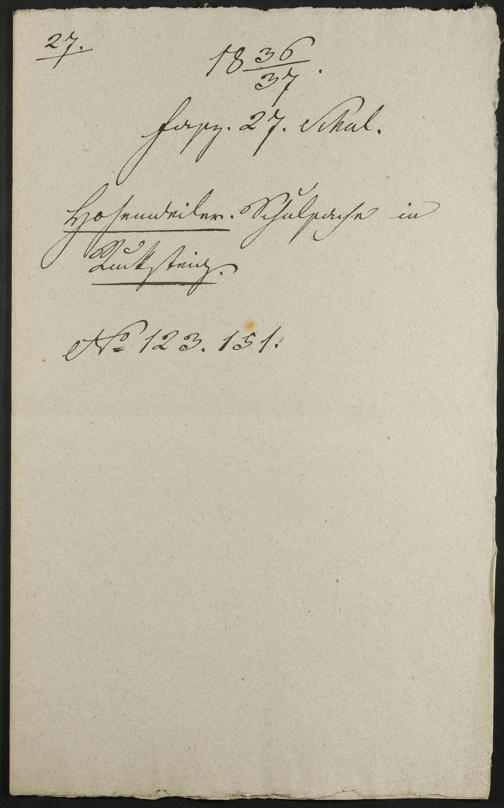 27.
18 36/37.
Fasz. 27. Schul.
Hohenweiler. Schulsache in
Rucksteig.
No 123. 151.